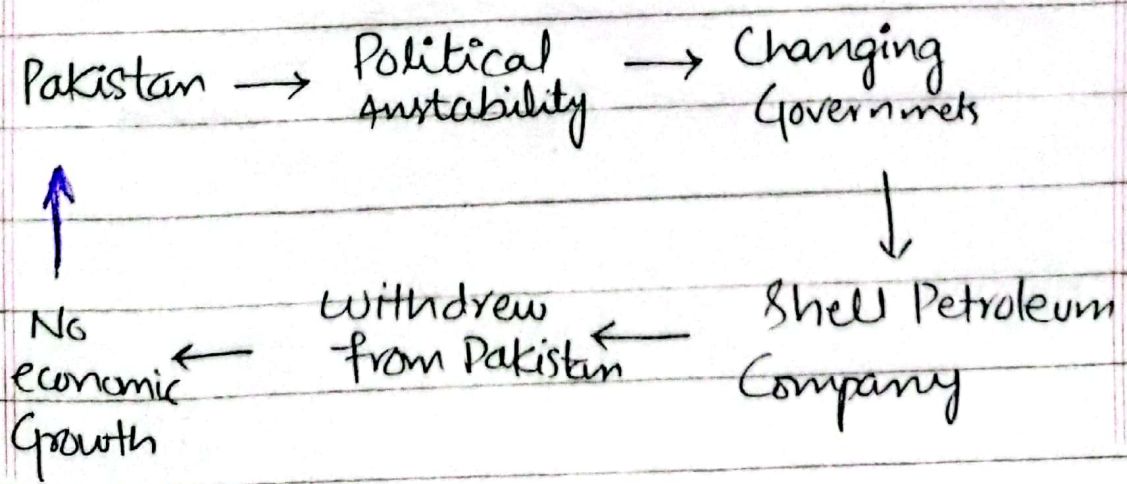 Pakistan → Political Anstability → Changing Governmets
↓
Shell Petroleum Company
← Withdrew from Pakistan
← No economic Growth
↑